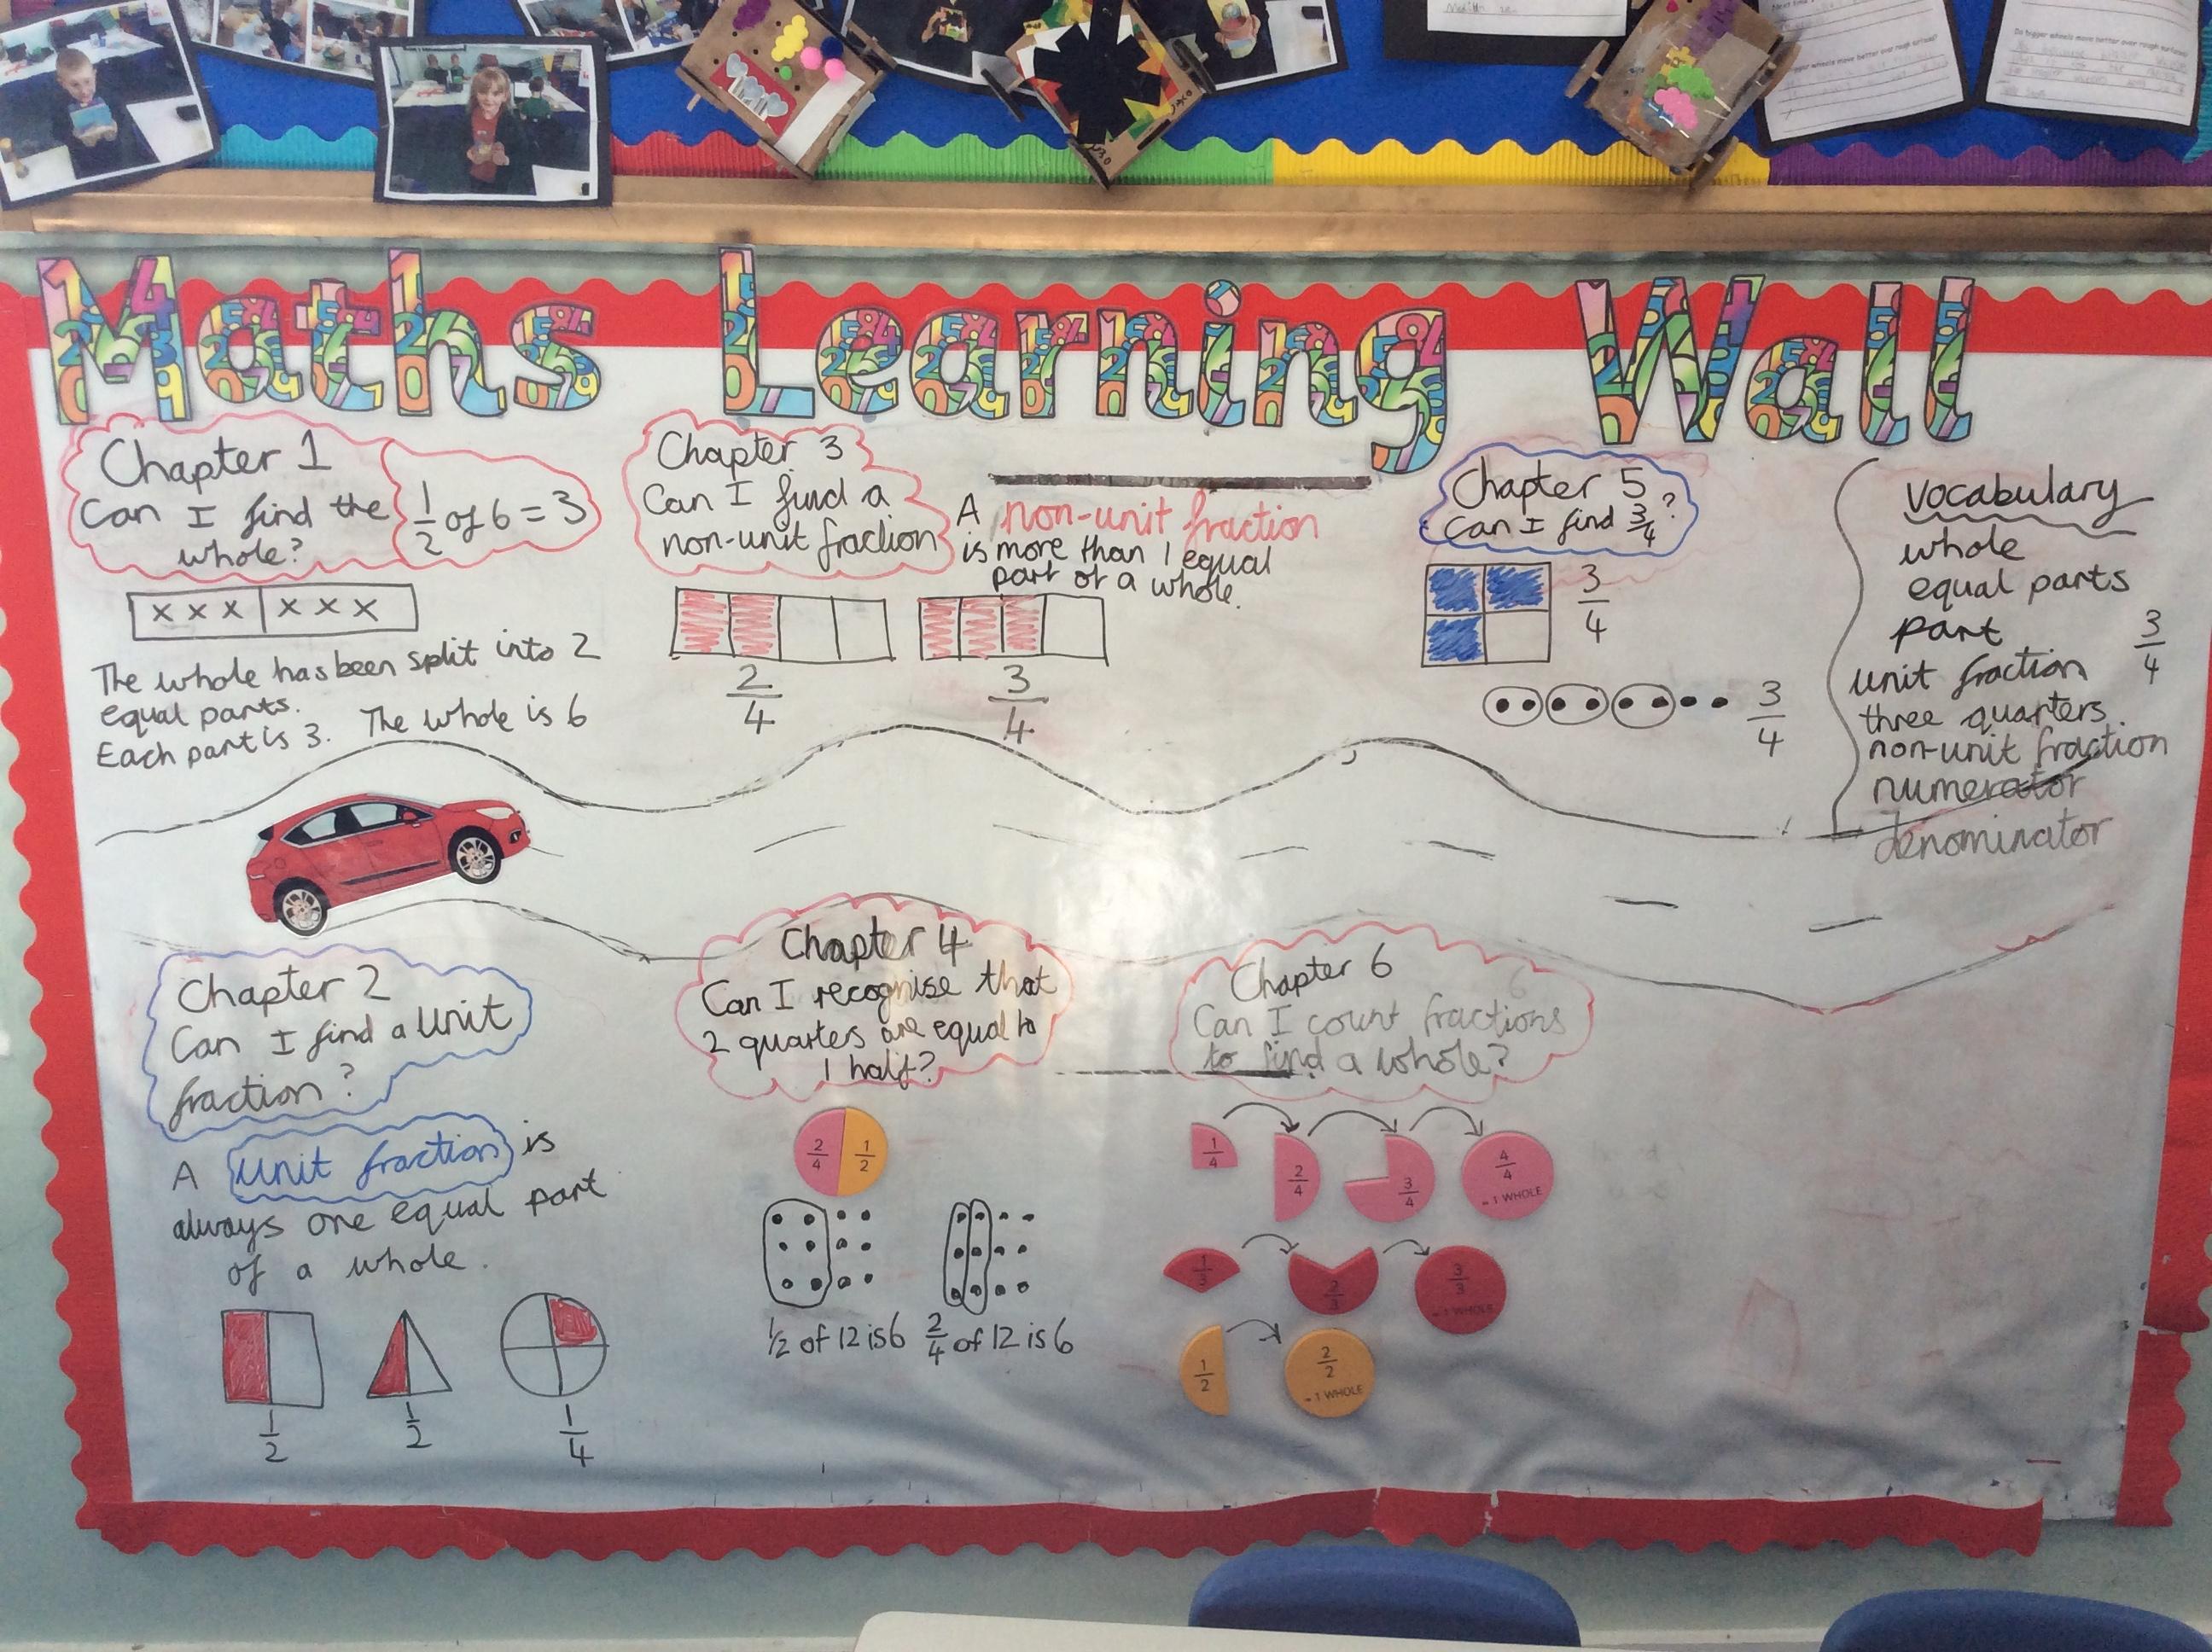 Do bigger wheels move better over rough surfaces?
Maths Learning Wall
Chapter 1
Can I find the
whole?
1/2 of 6 = 3
x x x x x x
The whole has been split into 2
equal parts.
Each part is 3. The whole is 6
Chapter 3
Can I find a
non-unit fraction
A non-unit fraction
is more than 1 equal
part of a whole.
2/4
3/4
Chapter 5
Can I find 3/4?
3/4
3/4
vocabulary
whole
equal parts
part
3/4
unit fraction
three quarters
non-unit fraction
numerator
denominator
Chapter 2
Can I find a unit
fraction?
A unit fraction is
always one equal part
of a whole.
1/2
1/2
1/4
Chapter 4
Can I recognise that
2 quarters are equal to
1 half?
2/4 1/2
1/2 of 12 is 6
2/4 of 12 is 6
Chapter 6
Can I count fractions
to find a whole?
1/4
2/4
3/4
4/4
= 1 WHOLE
1/3
2/3
3/3
= 1 WHOLE
1/2
2/2
= 1 WHOLE